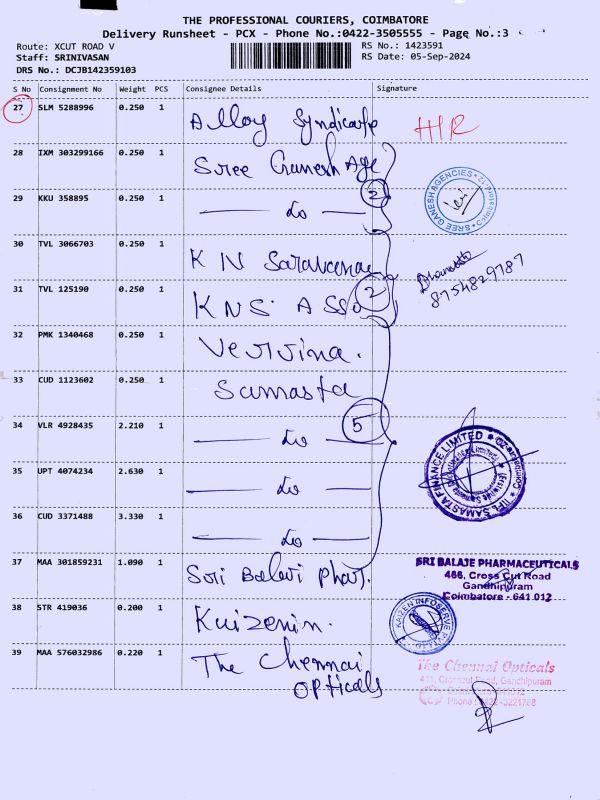 THE PROFESSIONAL COURIERS, COIMBATORE
Delivery Runsheet - PCX - Phone No.:0422-3505555 - Page No.:3
Route: XCUT ROAD V
RS No.: 1423591
Staff: SRINIVASAN
RS Date: 05-Sep-2024
DRS No.: DCJB142359103
S No Consignment No Weight PCS Consignee Details Signature
27 SLM 5288996 0.250 1 Alloy Syndicate HR
28 IXM 303299166 0.250 1 Sree Ganesh Age
SREE GANESH AGENCIES
29 KKU 358895 0.250 1 — do — 2
30 TVL 3066703 0.250 1 K N Saravanan
31 TVL 125190 0.250 1 KNS. ASSo 2
8754829787
32 PMK 1340468 0.250 1
33 CUD 1123602 0.250 1 Samasta
34 VLR 4928435 2.210 1 — do — 5
IIFL SAMASTA FINANCE LIMITED
35 UPT 4074234 2.630 1 — do —
36 CUD 3371488 3.330 1 — do —
37 MAA 301859231 1.090 1 Sri Balaji phar.
SRI BALAJE PHARMACEUTICALS
466, Cross Cut Road
Gandhipuram
Coimbatore - 641 012
38 STR 419036 0.200 1 Kaizenin.
KAIZEN INFOSERVE PVT LTD
39 MAA 576032986 0.220 1 The Chennai
OPticals
The Chennai Opticals
Road, Gandhipuram
Phone :